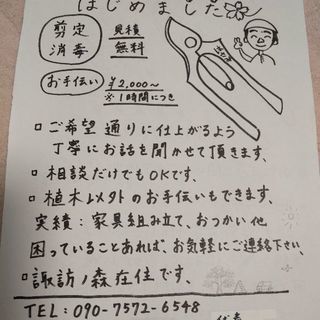 はじめました
剪定
消毒
見積
無料
お手伝い
¥2,000〜
※1時間につき
▫ご希望通りに仕上がるよう
丁寧にお話を聞かせて頂きます、
▫相談だけでもOKです、
▫植木以外のお手伝いもできます、
実績:家具組み立て、おつかい他
困っていることあれば、お気軽にご連絡下さい、
▫諏訪ノ森在住です、
TEL:090-7572-6548